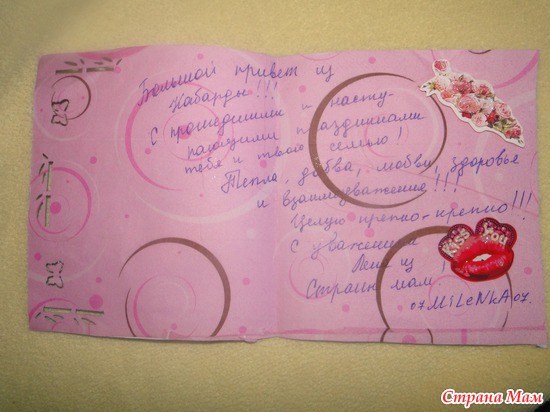 Большой привет из
Кабарды!!!
С прошедшими и насту-
пающими праздниками
тебя и твою семью!
Тепла, добва, любви, здоровья
и взаимоуважения!!!
Целую крепко-крепко!!!
С уважением
Лена из
Страны мам!
07MiLeNkA07.
KISS YOU
Страна Мам